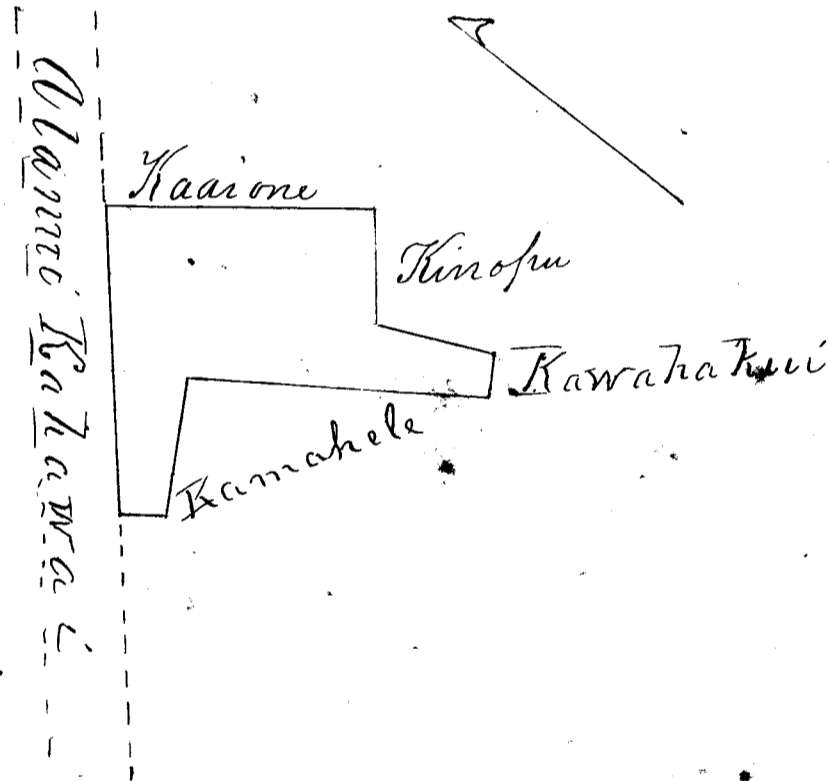 Alanui Kahawai
Kaaione
Kinopu
Kawahakui
Kamahele